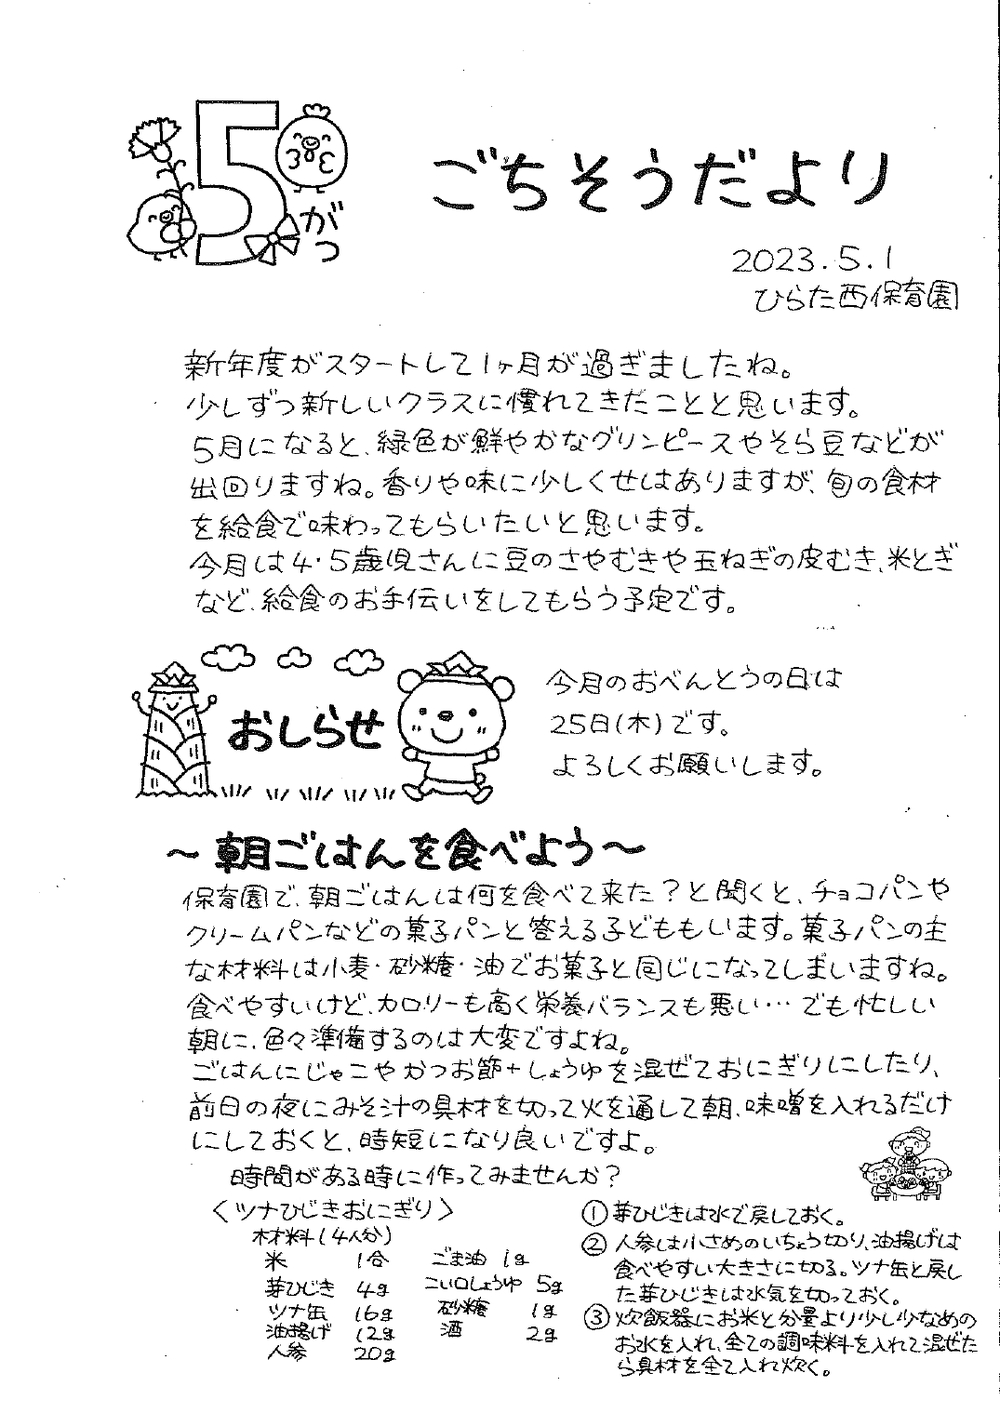 5
がつ
ごちそうだより
2023.5.1
ひらた西保育園
新年度がスタートして1ヶ月が過ぎましたね。
少しずつ新しいクラスに慣れてきだことと思います。
5月になると、緑色が鮮やかなグリンピースやそら豆などが
出回りますね。香りや味に少しくせはありますが、旬の食材
を給食で味わってもらいたいと思います。
今月は4・5歳児さんに豆のさやむきや玉ねぎの皮むき、米とぎ
など、給食のお手伝いをしてもらう予定です。
おしらせ
今月のおべんとうの日は
25日(木)です。
よろしくお願いします。
~朝ごはんを食べよう~
保育園で、朝ごはんは何を食べて来た?と聞くと、チョコパンや
クリームパンなどの菓子パンと答える子どももいます。菓子パンの主
な材料は小麦・砂糖・油でお菓子と同じになってしまいますね。
食べやすいけど、カロリーも高く栄養バランスも悪い…でも忙しい
朝に、色々準備するのは大変ですよね。
ごはんにじゃこやかつお節+しょうゆを混ぜておにぎりにしたり、
前日の夜にみそ汁の具材を切って火を通して朝、味噌を入れるだけ
にしておくと、時短になり良いですよ。
時間がある時に作ってみませんか?
〈ツナひじきおにぎり〉
材料(4人分)
米 1合 ごま油 1g
芽ひじき 4g こい口しょうゆ 5g
ツナ缶 16g 砂糖 1g
油揚げ 12g 酒 2g
人参 20g
①芽ひじきは水で戻しておく。
②人参は小さめのいちょう切り、油揚げは
食べやすい大きさに切る。ツナ缶と戻し
た芽ひじきは水気を切っておく。
③炊飯器にお米と分量より少し少なめの
お水を入れ、全ての調味料を入れて混ぜた
ら具材を全て入れ炊く。